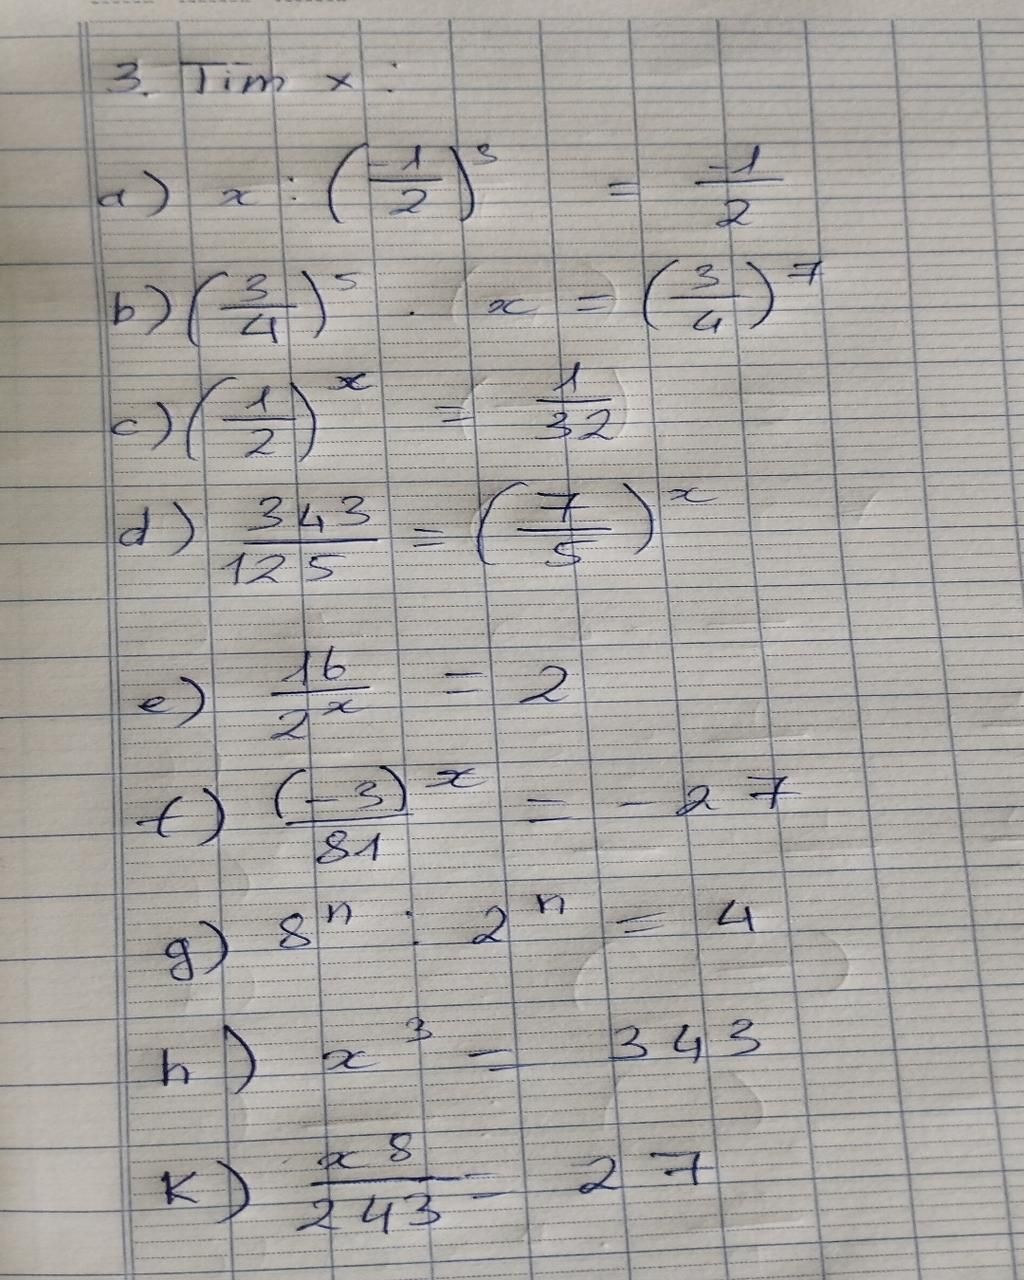 3. Tim x :
a) x : (-1/2)³ = -1/2
b) (3/4)⁵ . x = (3/4)⁷
c) (1/2)ˣ = 1/32
d) 343/125 = (7/5)ˣ
e) 16/2ˣ = 2
f) (-3)ˣ/81 = -27
g) 8ⁿ : 2ⁿ = 4
h) x³ = 343
K) x⁸/243 = 27